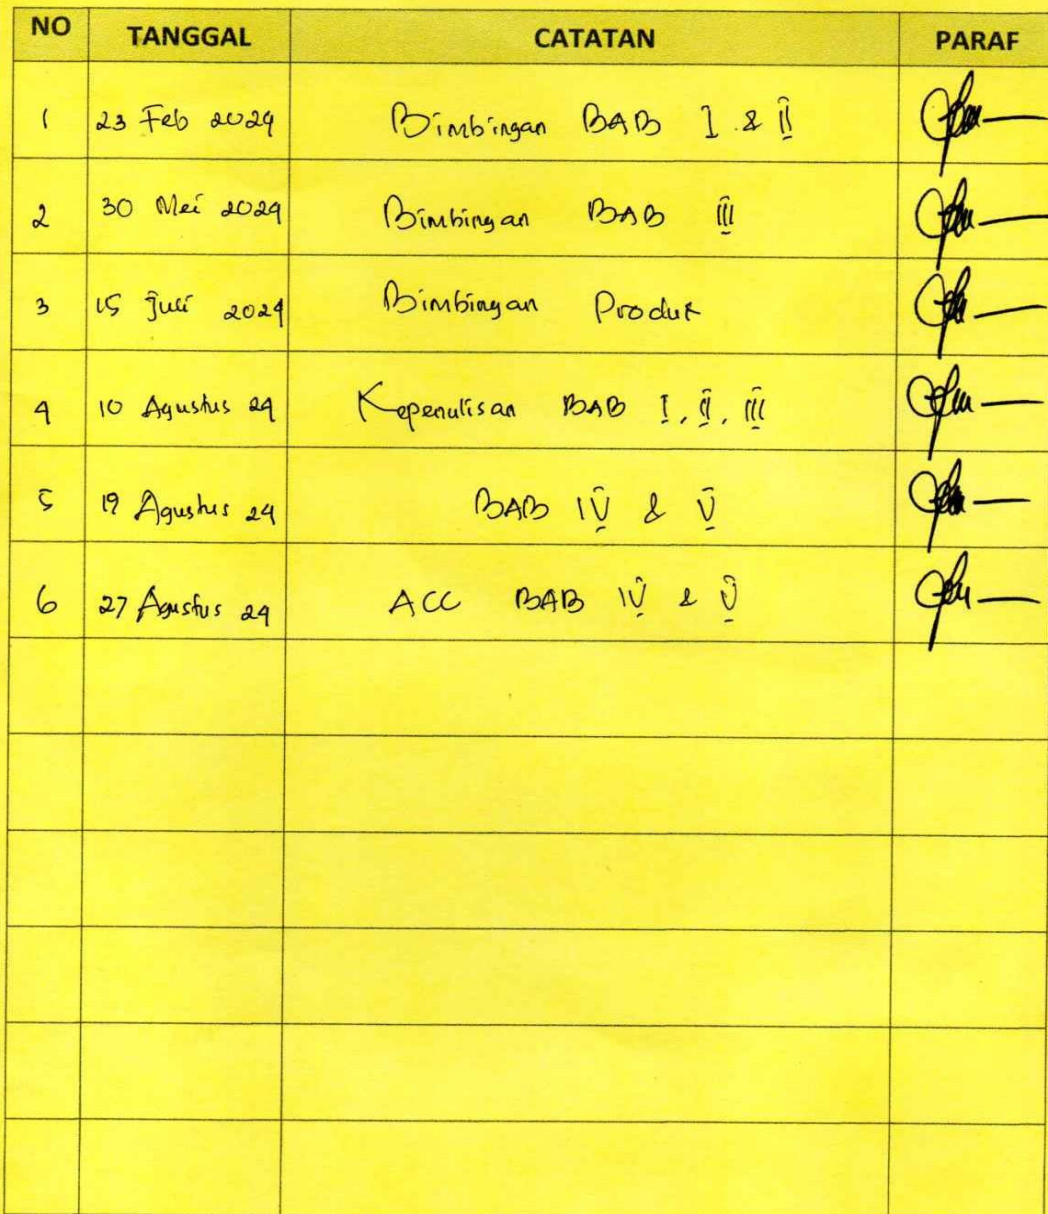 NO TANGGAL CATATAN PARAF
1 23 Feb 2024 Bimbingan BAB I & II
2 30 Mei 2024 Bimbingan BAB III
3 15 Juli 2024 Bimbingan Produk
4 10 Agustus 24 Kepenulisan BAB I, II, III
5 19 Agustus 24 BAB IV & V
6 27 Agustus 24 ACC BAB IV & V